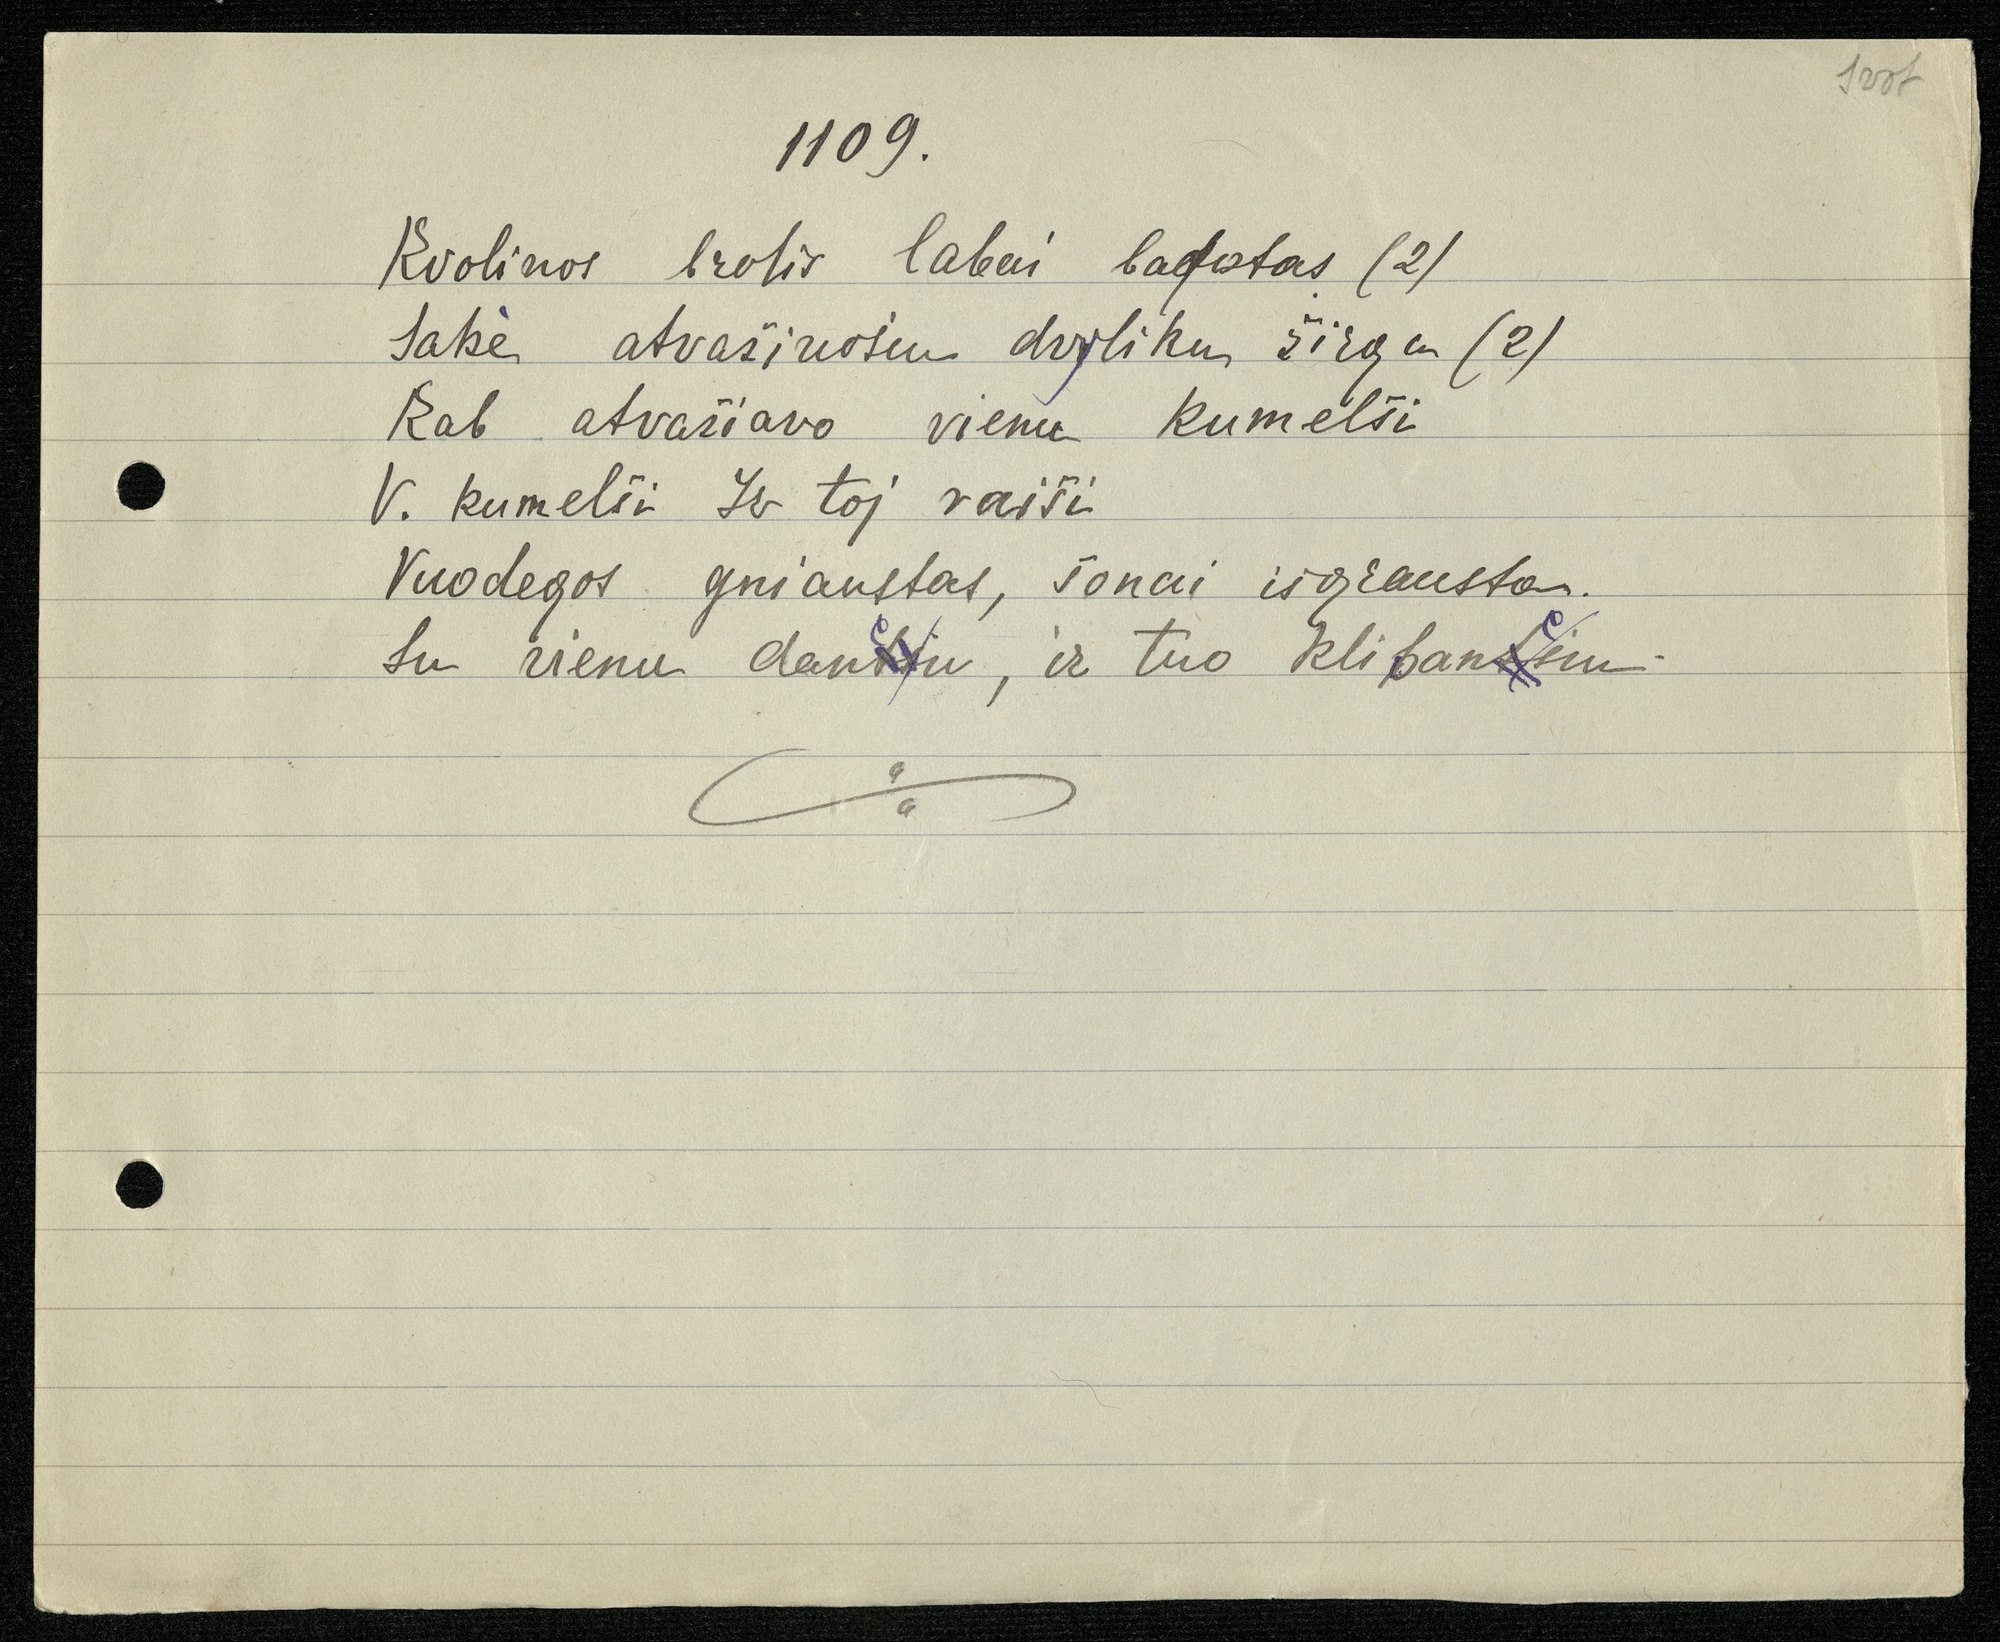 1109.
Kvolinos brolis labai bagotas (2)
Sakė atvažiuosiu dvyliku žirgu (2)
Kab atvažiavo vienu kumelši
V. kumelši Ir toj raiši
Vuodegos gniaustas, šonai isgrausta.
Su vienu danciu, ir tuo klibanciu.